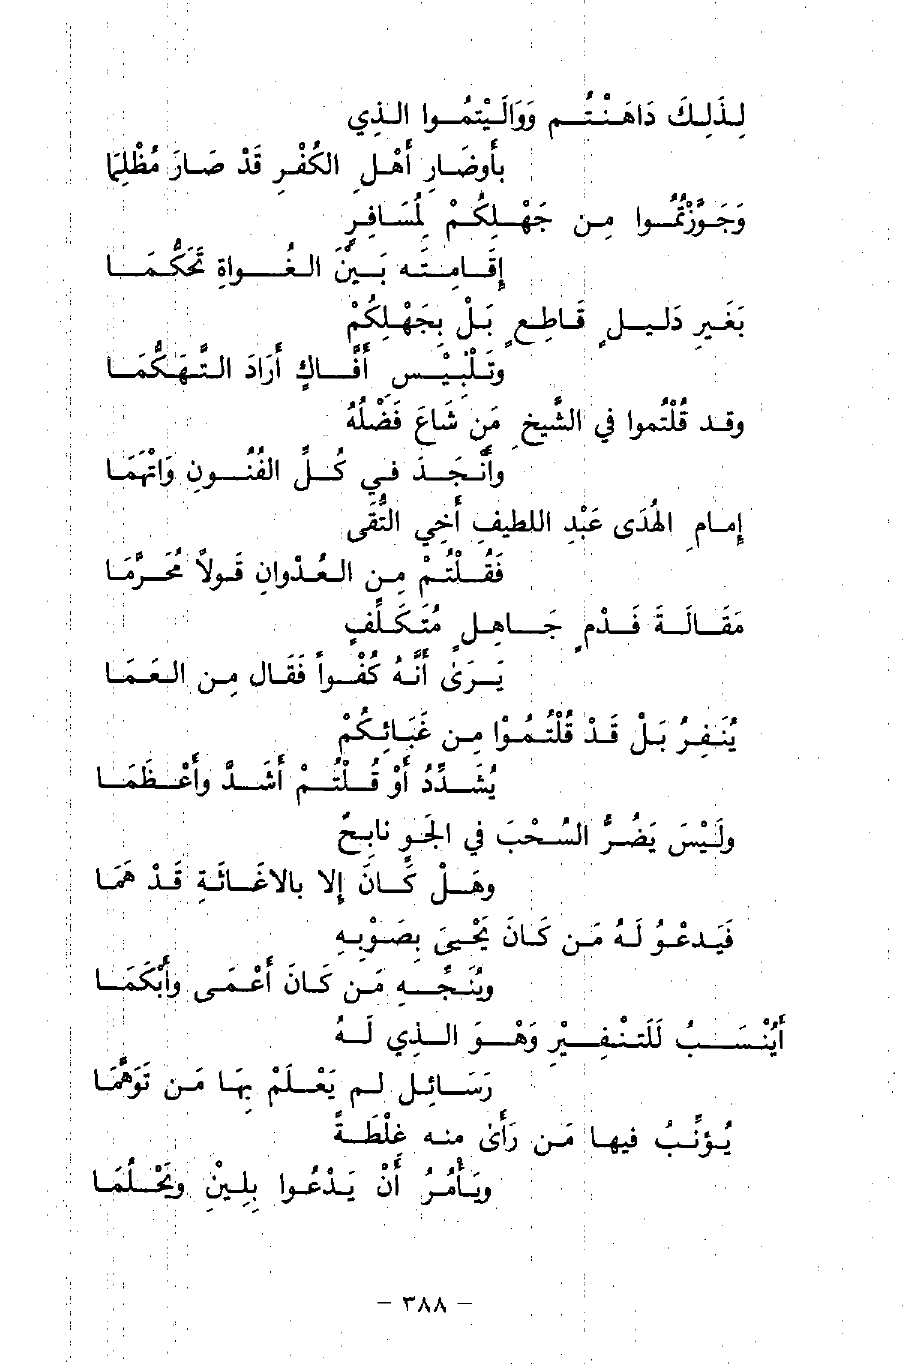 لِذَلِكَ دَاهَنْتُم وَوَالَيْتِمُوا الذِي
بأَوضَارِ أَهْلِ الكُفْرِ قَدْ صَارَ مُظْلِمَا
وَجَوَّزْتُمُوا مِن جَهْلِكُمْ لِمُسَافِرٍ
إِقَامِتَه بَيْنَ الغُواةِ تَحَكُّمَا
بَغَيرِ دَليلٍ قَاطِعٍ بَلْ بِجَهْلِكُمْ
وتَلْبِيْسِ أَفَّاكٍ أَرَادَ التَّهَكُّمَا
وقد قُلْتُموا في الشَّيخِ مَن شَاعَ فَضْلُهُ
وأَنْجَدَ في كُلِّ الفُنُونِ وَاتْهَمَا
إِمامِ الهُدَى عَبْدِ اللطيفِ أَخِي التُّقَى
فَقُلْتُمْ مِن العُدْوانِ قَولاً مُحَرَّمَا
مَقَالَةَ فَدْمٍ جَاهِلٍ مُتَكَلِّفٍ
يَرَىٰ أَنَّهُ كُفْواً فَقَال مِن العَمَا
يُنَفِرُ بَلْ قَدْ قُلْتُمُوْا مِن غَبَائِكُمْ
يُشَدِّدُ أَوْ قُلْتُمْ أَشَدَّ وأَعْظَمَا
ولَيْسَ يَضُرُّ السُحْبَ في الجَوِ نابِحٌ
وهَلْ كَّانَ إِلا بالاغَاثَةِ قَدْ هَمَا
فَيَدعُو لَهُ مَن كَانَ يَحْيَىٰ بِصَوْبِهِ
ويُنَجِّهِ مَن كَانَ أَعْمَى وأَبْكَمَا
أَيُنْسَبُ لَلتنْفِيْرِ وَهْوَ الذِي لَهُ
رَسَائِل لم يَعْلَمْ بِهَا مَن تَوَهَّمَا
يُؤنِّبُ فيها مَن رَأَىٰ منه غِلْظَةً
ويَأْمُرُ أَنْ يَدْعُوا بِلِينْ ويَحْلُمَا
– ٣٨٨ –